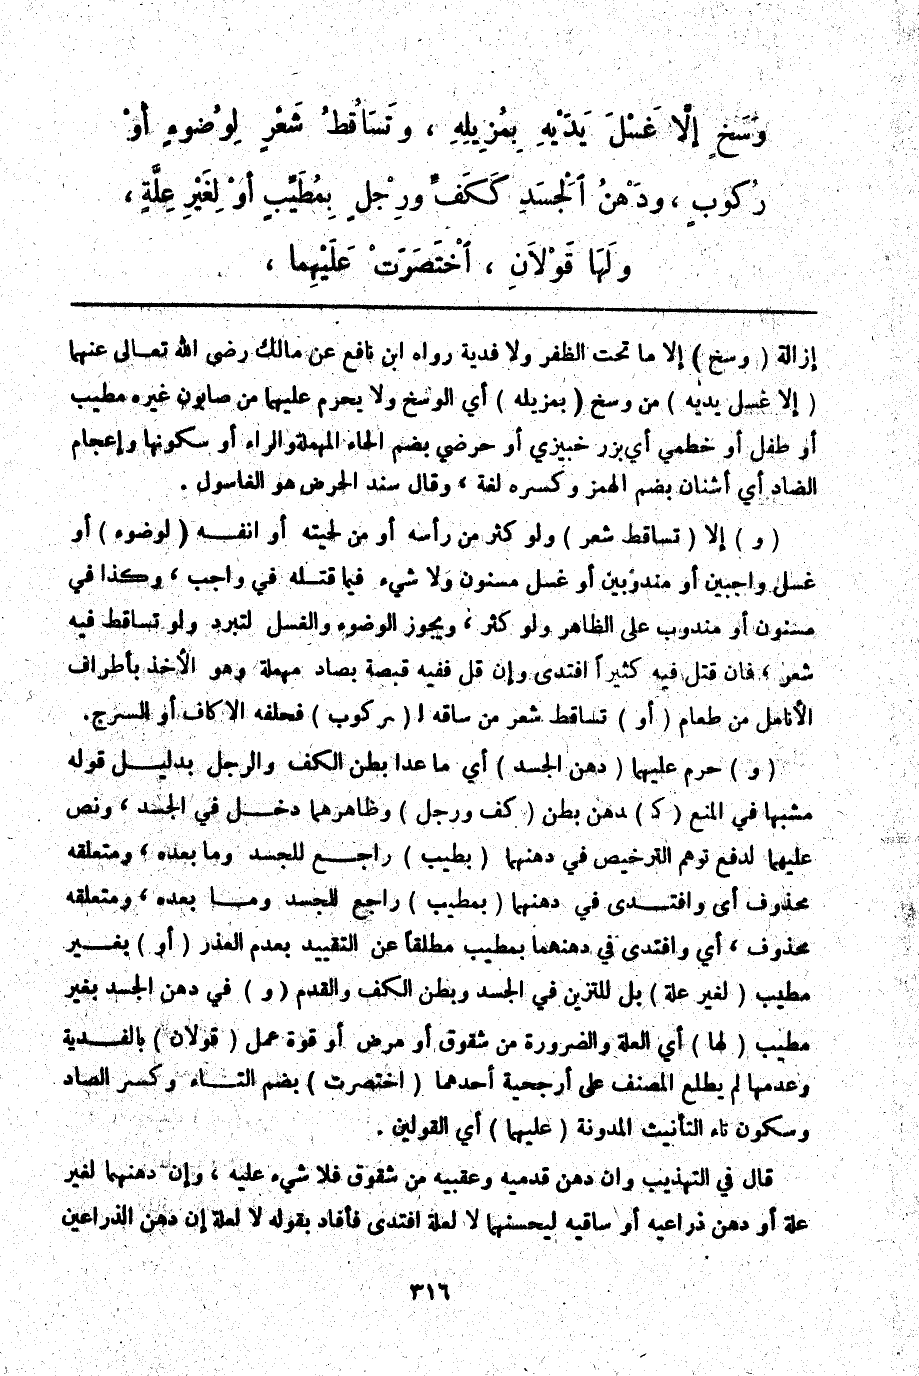 وَسَخٍ إِلَّا غَسْلَ يَدَيْهِ بِمُزِيلِهِ ، وَتَسَاقُطُ شَعْرٍ لِوُضوءٍ أَوْ
رُكُوبٍ ، ودَهْنُ ٱلْجَسَدِ كَكَفٍّ ورِجْلٍ بِمُطَيَّبٍ أَوْ لِغَيْرِ عِلَّةٍ ،
ولَهَا قَوْلاَنِ ، ٱخْتَصَرَتْ عَلَيْهِما ،
إزالة ( وسخ ) إلا ما تحت الظفر ولا فدية رواه ابن نافع عن مالك رضى الله تعـالى عنهما
( إلا غسل يديه ) من وسخ ( بمزيله ) أي الوسخ ولا يحرم عليهما من صابون غيره مطيب
أو طفل أو خطمي أي بزر خبيزي أو حرضي بضم الحاء المهملة والراء أو سكونها وإعجام
الضاد أي أشنان بضم الهمز وكسره لغة ، وقال سند الحرض هو الغاسول .
( و ) إلا ( تساقط شعر ) ولو كثر من رأسه أو من لحيته أو انفـــه ( لوضوء ) أو
غسل واجبين أو مندوبين أو غسل مسنون ولا شيء فيما قتـله في واجب ، وكذا في
مسنون أو مندوب على الظاهر ولو كثر ، ويجوز الوضوء والغسل لتبرد ولو تساقط فيه
شعر ، فان قتل فيه كثيراً افتدى وإن قل ففيه قبصة بصاد مهملة وهو الأخذ بأطراف
الأنامل من طعام ( أو ) تساقط شعر من ساقه لـ ( ـركوب ) فحلقه الاكاف أو السرج.
( و ) حرم عليهما ( دهن الجسد ) أي ما عدا بطن الكف والرجل بدليـــل قوله
مشبها في المنع ( كـ ) ـدهن بطن ( كف ورجل ) وظاهرهما دخـــل في الجسد ، ونص
عليهما لدفع توهم الترخيص في دهنهما ( بطيب ) راجـــع للجسد وما بعده ، ومتعلقه
محذوف أي وافتـــدى في دهنهما ( بمطيب ) راجع للجسد ومـــا بعده ، ومتعلقه
محذوف ، أي وافتدى في دهنهما بمطيب مطلقاً عن التقييد بعدم العذر ( أو ) بغـــير
مطيب ( لغير علة ) بل للتزين في الجسد وبطن الكف والقدم ( و ) في دهن الجسد بغير
مطيب ( لها ) أي العلة والضرورة من شقوق أو مرض أو قوة عمل ( قولان ) بالفـــدية
وعدمها لم يطلع المصنف على أرجحية أحدهما ( اختصرت ) بضم التـــاء وكسر الصاد
وسكون تاء التأنيث المدونة ( عليهما ) أي القولين .
قال في التهذيب وان دهن قدميه وعقبيه من شقوق فلا شيء عليه ، وإن دهنهما لغير
علة أو دهن ذراعيه أو ساقيه ليحسنهما لا لعلة افتدى فأفاد بقوله لا لعلة إن دهن الذراعين
٣١٦